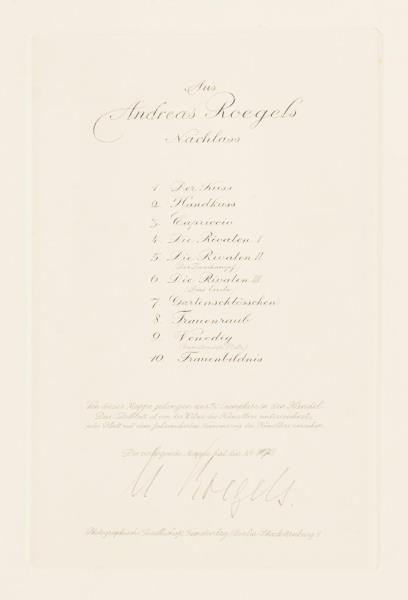 Aus
Andreas Roegels
Nachlass
1 Der Kuss
2 Handkuss
3 Capriccio
4 Die Rivalen I
5 Die Rivalen II
6 Die Rivalen III
Das Ende
7 Gartenschlösschen
8 Frauenraub
9 Venedig
10 Frauenbildnis
Von dieser Mappe gelangen nur Exemplare in den Handel.
Das Titelblatt ist von der Witwe des Künstlers unterzeichnet,
jedes Blatt mit dem des Künstlers versehen.
Die vorliegende Mappe hat die Nr.
Roegels.
Photographische Gesellschaft, Berlin-Charlottenburg